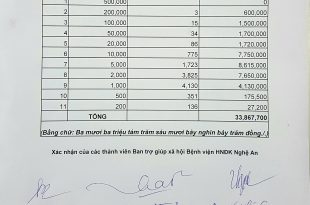 1 500,000
2 200,000 3 600,000
3 100,000 15 1,500,000
4 50,000 34 1,700,000
5 20,000 86 1,720,000
6 10,000 775 7,750,000
7 5,000 1,723 8,615,000
8 2,000 3,825 7,650,000
9 1,000 4,130 4,130,000
10 500 351 175,500
11 200 136 27,200
TỔNG 33,867,700
(Bằng chữ: Ba mươi ba triệu tám trăm sáu mươi bảy nghìn bảy trăm đồng./.)
Xác nhận của các thành viên Ban trợ giúp xã hội Bệnh viện HNĐK Nghệ An